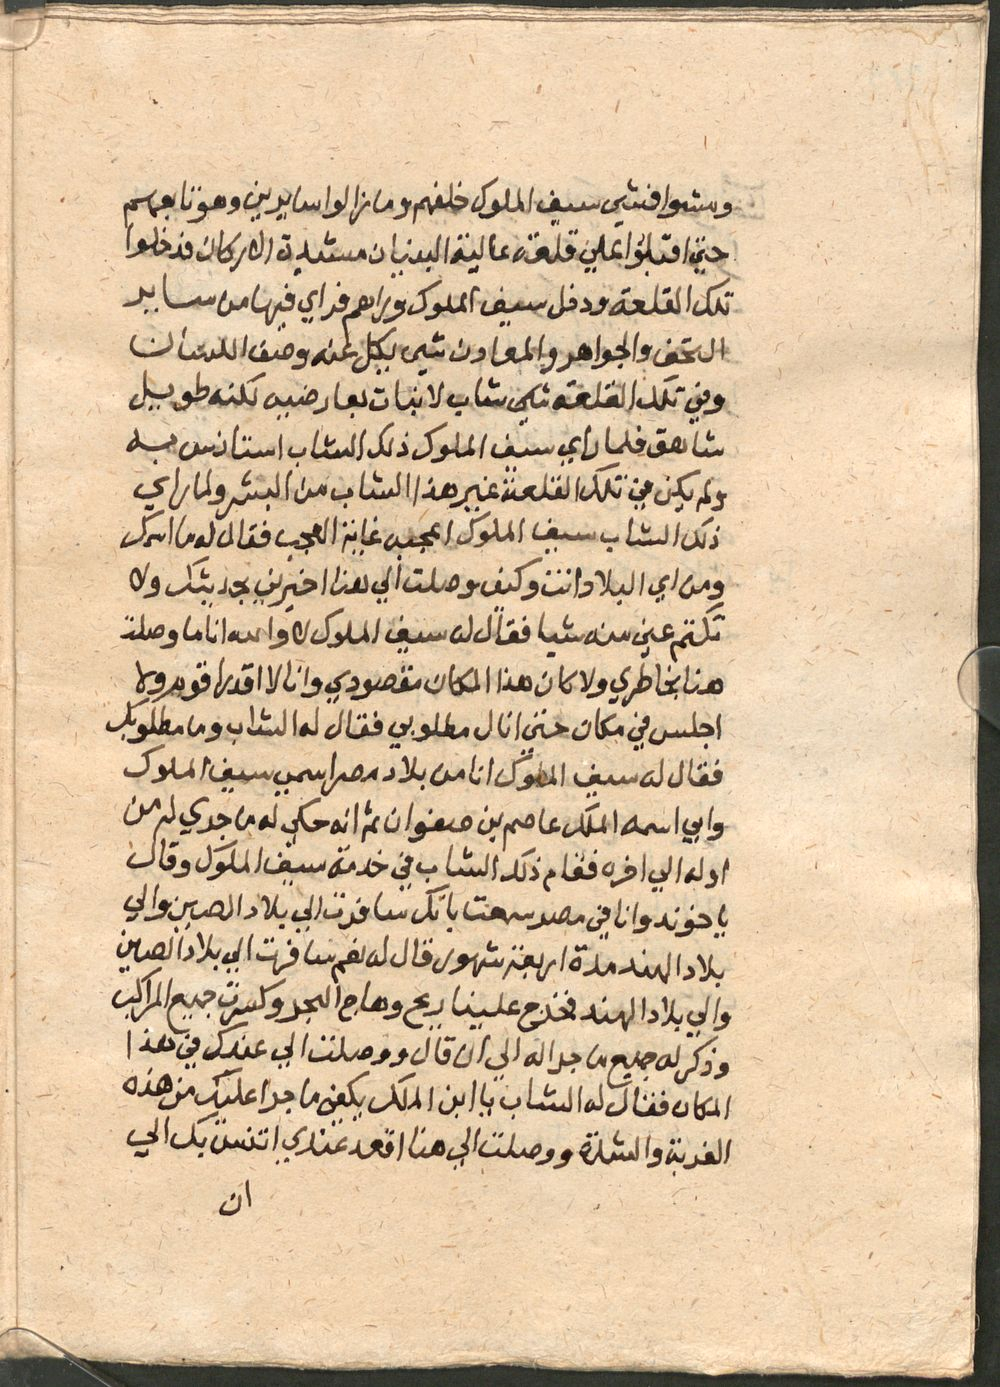 ومشوا فمشي سيف الملوك خلفهم وما زالوا سايرين وهو تابعهم
حتي اقبلوا علي قلعة عالية البنيان مشيدة الاركان فدخلوا
تلك القلعة ودخل سيف الملوك وراهم فراي فيها من ساير
التحف والجواهر والمعادن شي يكل عنه وصف اللسان
وفي تلك القلعة شي شاب لا نبات بعارضيه لكنه طويل
شاهق فلما راي سيف الملوك ذلك الشاب استانس به
ولم يكن في تلك القلعة غير هذا الشاب من البشر ولما راي
ذلك الشاب سيف الملوك اعجبه غاية العجب فقال له ما اسمك
ومن اي البلاد انت وكيف وصلت الي هنا اخبرني بحديثك ولا
تكتم عني منه شيا فقال له سيف الملوك لا والله انا ما وصلت
هنا بخاطري ولا كان هذا المكان مقصودي وانا لا اقدر اقوم ولا
اجلس في مكان حتي انال مطلوبي فقال له الشاب وما مطلوبك
فقال له سيف الملوك انا من بلاد مصر اسمي سيف الملوك
وابي اسمه الملك عاصم بن صفوان ثم انه حكي له ما جري له من
اوله الي اخره فقام ذلك الشاب في خدمة سيف الملوك وقال
يا خوند وانا في مصر سمعت بانك سافرت الي بلاد الصين والي
بلاد الهند مدة اربعة شهور قال له نعم سافرت الي بلاد الصين
والي بلاد الهند فخرج علينا ريح وهاج البحر وكسرت جميع المراكب
وذكر له جميع ما جرا له الي ان قال ووصلت الي عندك في هذا
المكان فقال له الشاب يا ابن الملك يكفي ما جرا عليك من هذه
الغربة والشدة ووصلت الي هنا اقعد عندي اتنس بك الي
ان